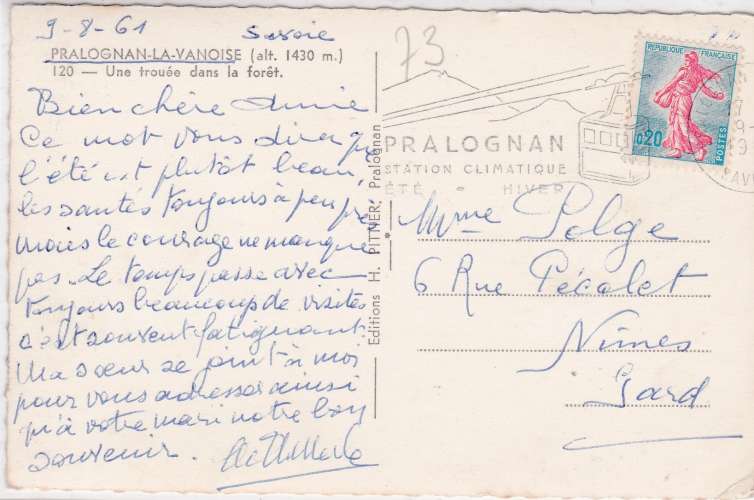 9-8-61 Savoie
73
PRALOGNAN-LA-VANOISE (alt. 1430 m.)
120 — Une trouée dans la forêt.
Bien chère Amie
Ce mot vous dira que
l'été est plutôt beau,
les santés toujours à peu près
mais le courage ne manque
pas. Le temps passe avec
toujours beaucoup de visites
c'est souvent fatiguant.
Ma sœur se joint à moi
pour vous adresser ainsi
qu'à votre mari notre bon
souvenir.
Editions H. PITTNER, Pralognan
REPUBLIQUE FRANÇAISE
0,20
POSTES
PRALOGNAN
STATION CLIMATIQUE
ÉTÉ - HIVER
Mme Polge
6 Rue Pécalet
Nîmes
Gard